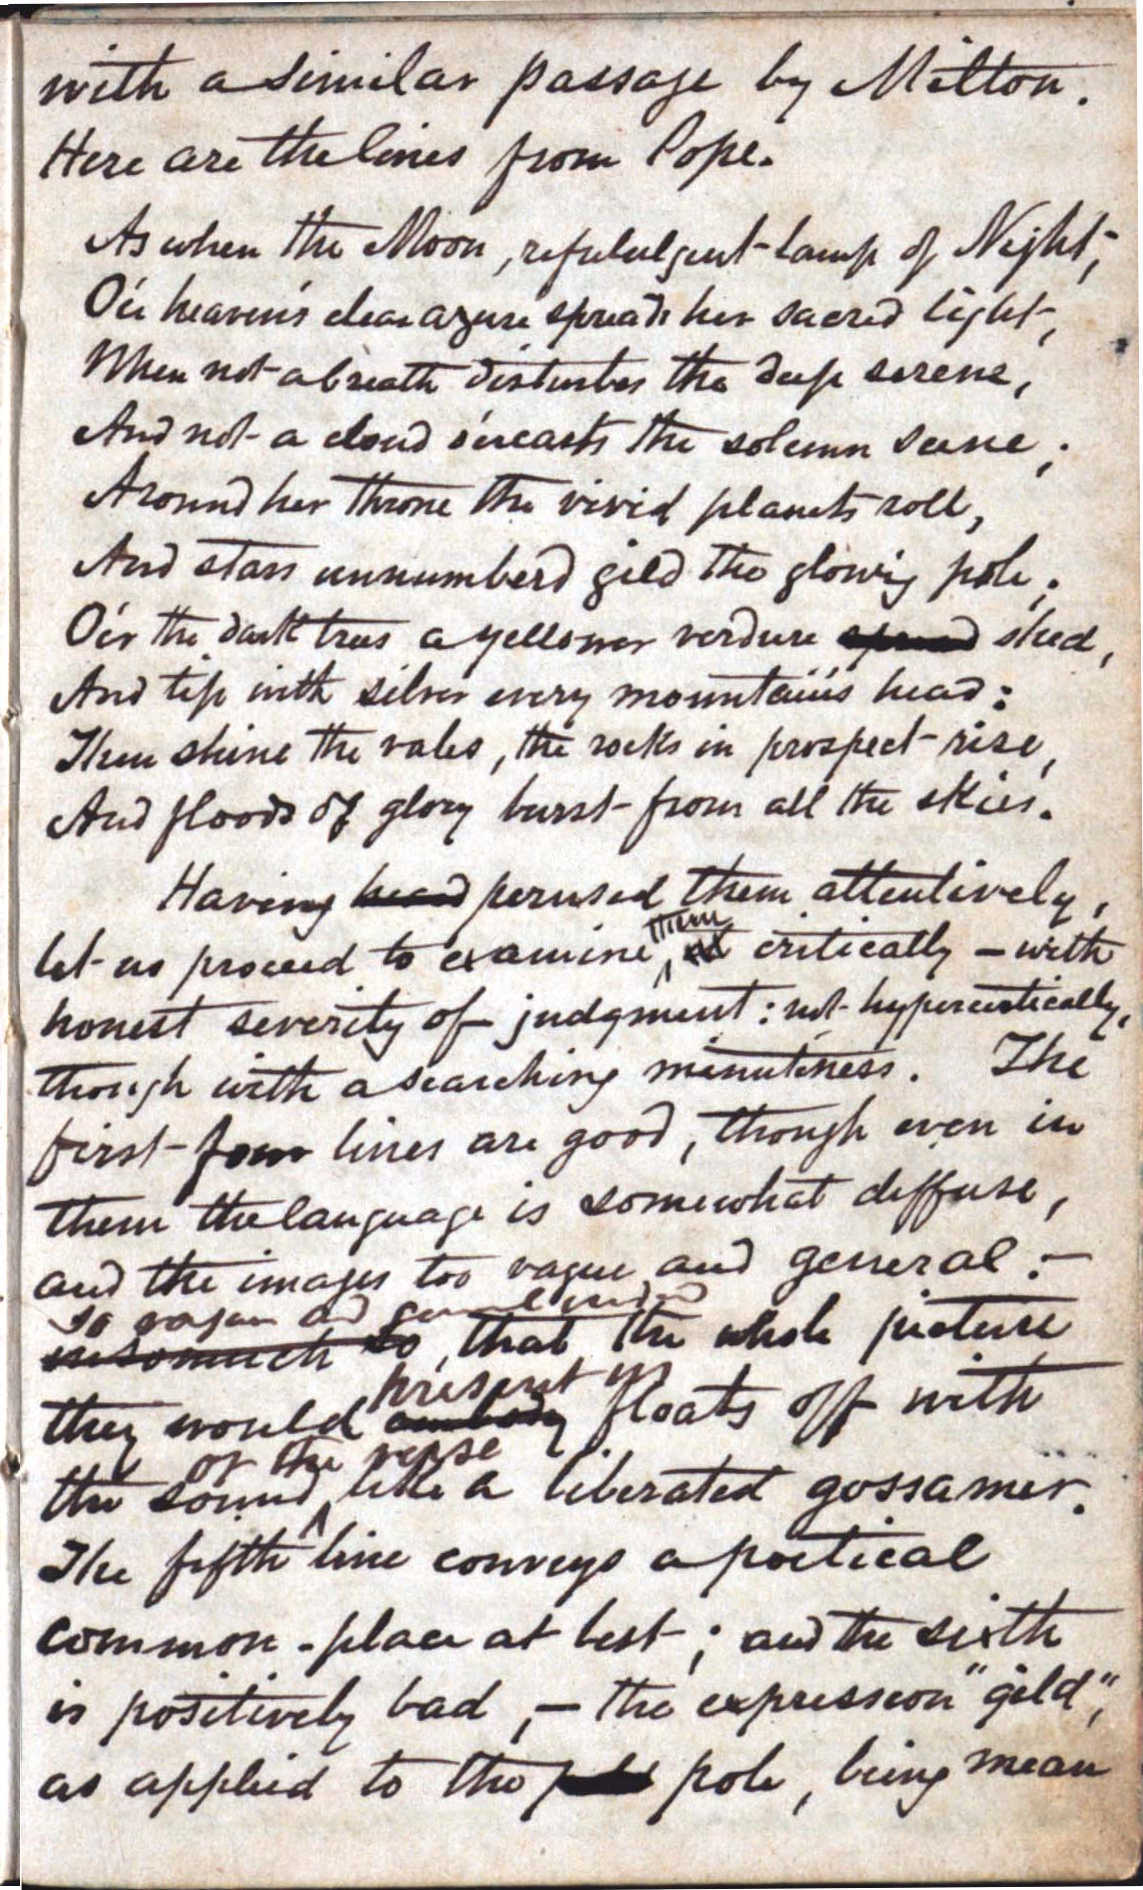 with a similar passage by Milton.
Here are the lines from Pope.
As when the Moon, refululgent lamp of Night,
O'er heaven's clear azure spreads her sacred light,
When not a breath disturbes the deep serene,
And not a cloud o'ercasts the solemn scene;
Around her throne the vivid planets roll,
And stars unnumberd gild the glowing pole;
O'er the dark trees a yellower verdure spread shed,
And tip with silver every mountain's head:
Then shine the vales, the rocks in prospect rise,
And floods of glory burst from all the skies.
Having head perused them attentively,
them
let us proceed to examine, it critically – with
honest severity of judgment: not hypercritically,
though with a searching minuteness. The
first four lines are good, though even in
them the language is somewhat diffuse,
and the images too vague and general: –
so vague and general indeed
insomuch so, that the whole picture
present us
they would embody floats off with
of the verse
the sound, like a liberated gossamer.
The fifth line conveys a poetical
common-place at best; and the sixth
is positively bad, – the expression "gild",
as applied to the pole, being mean